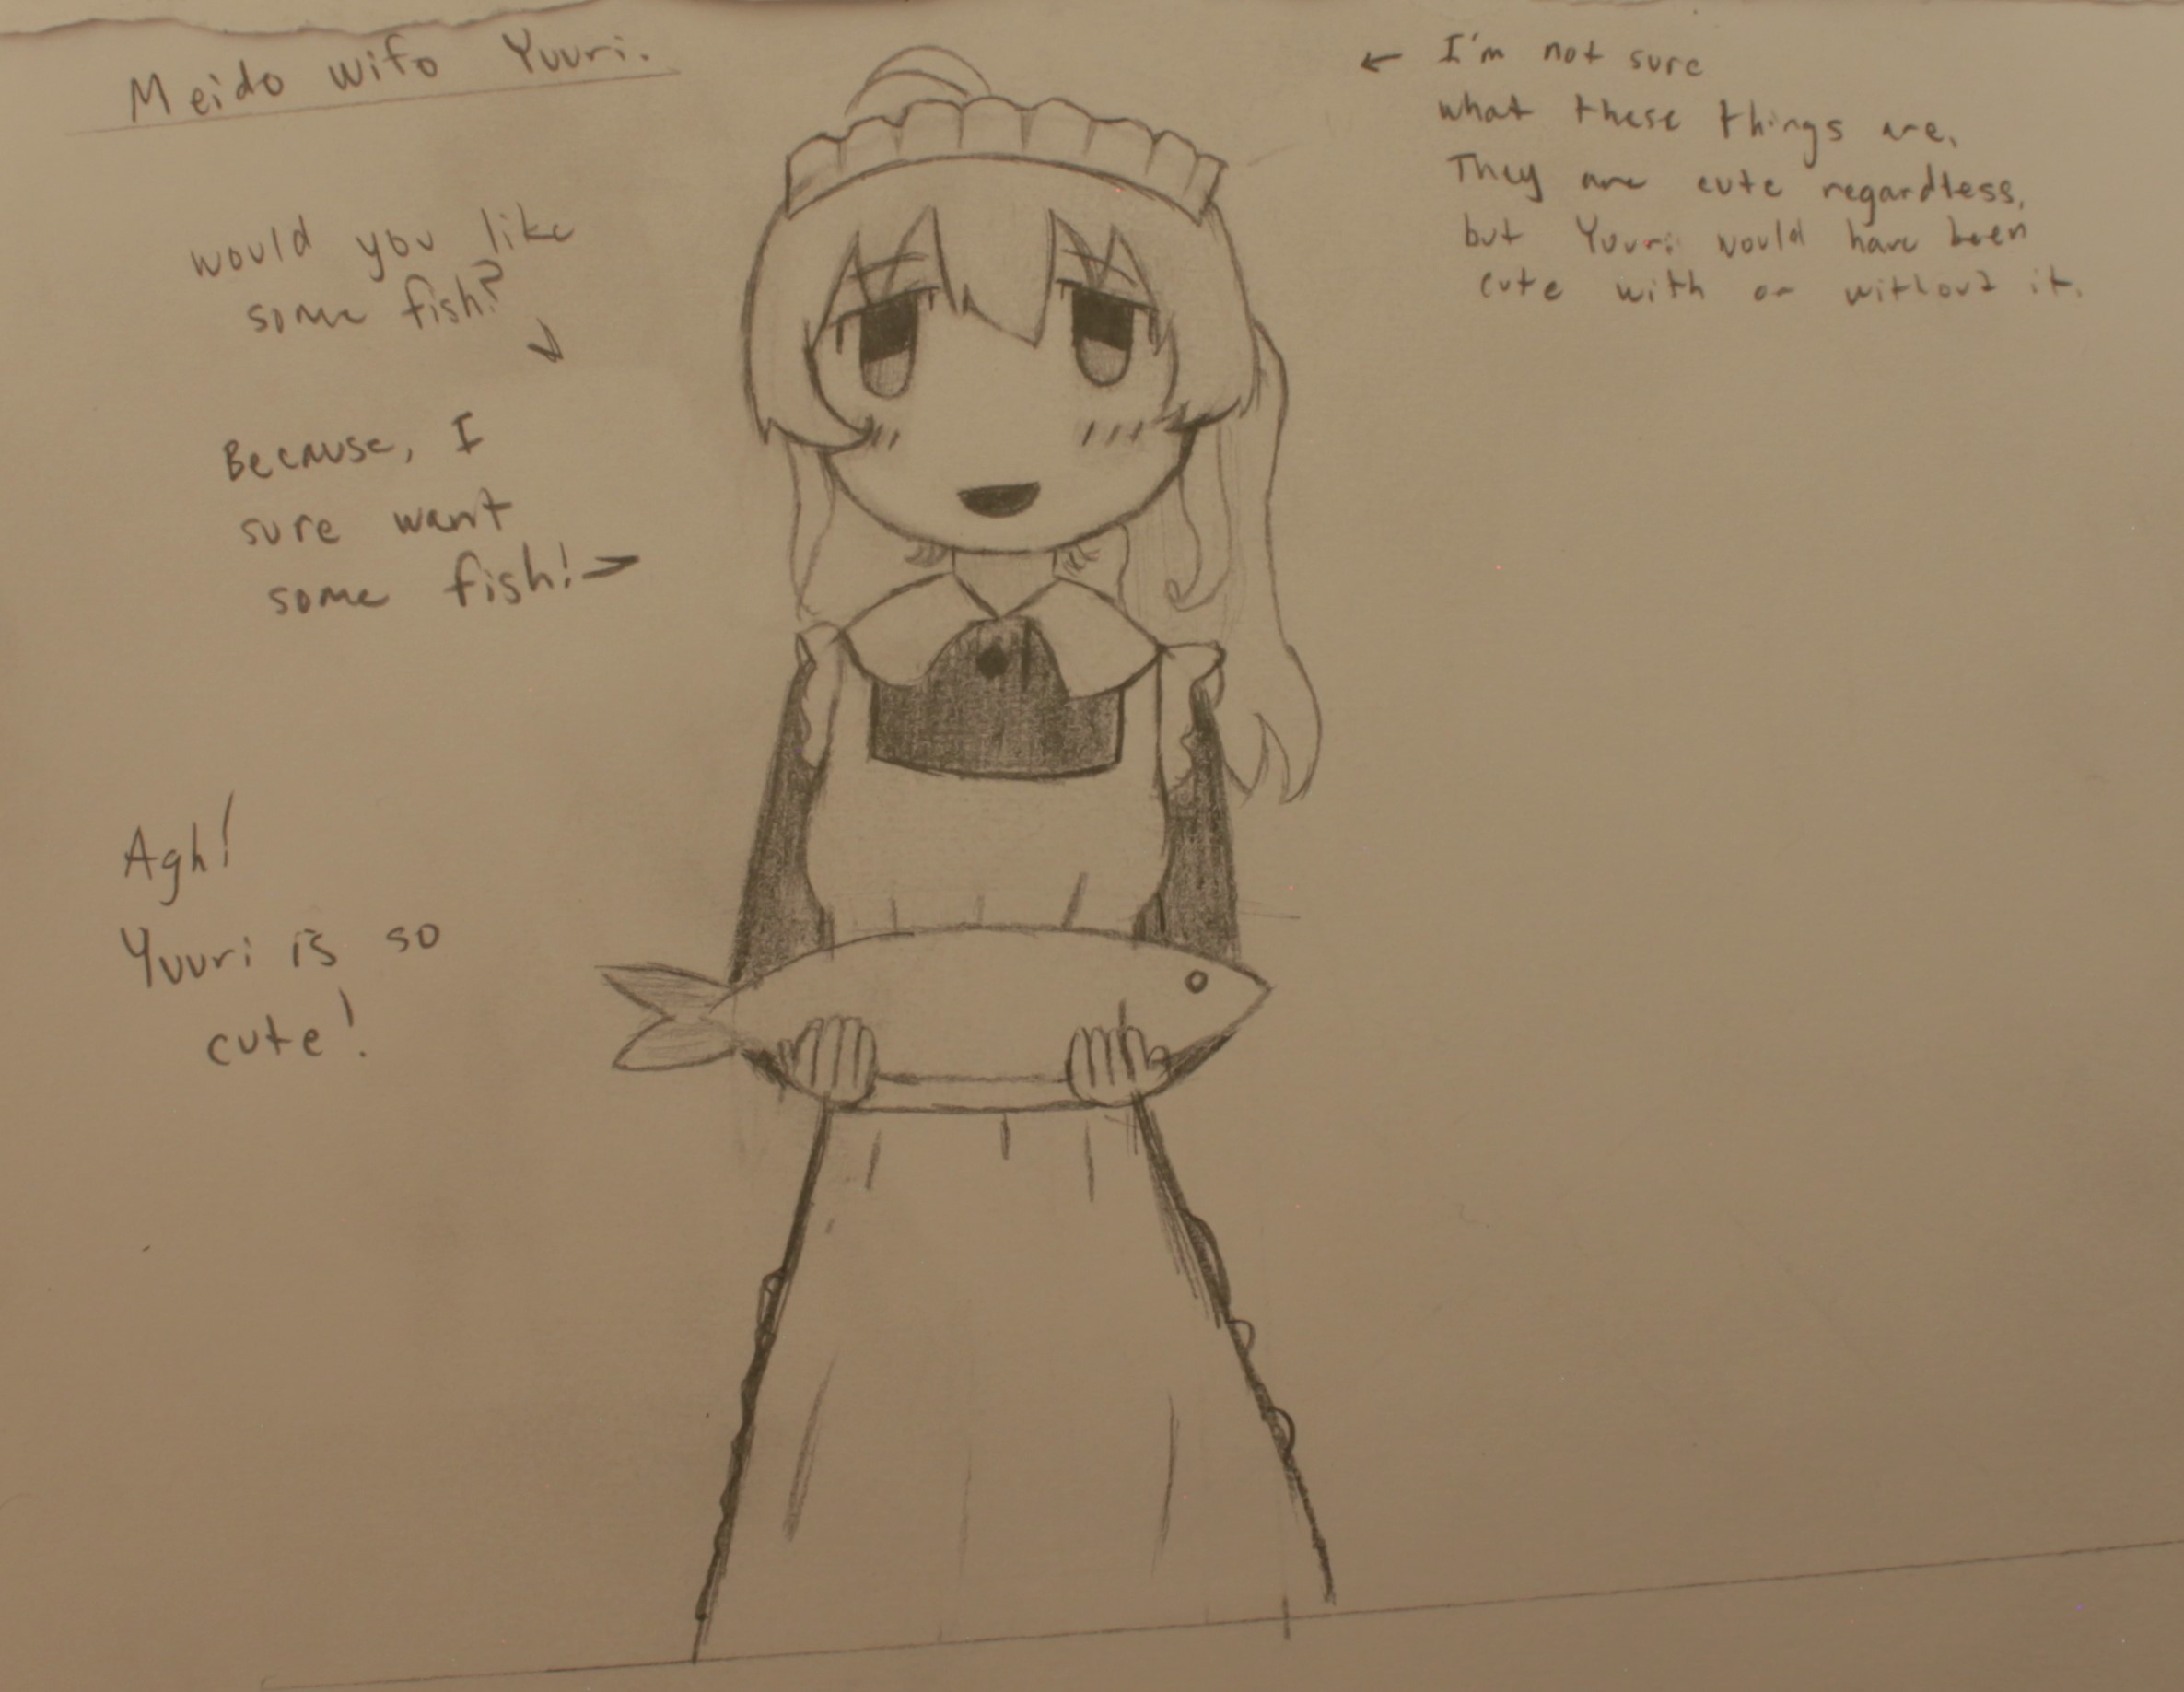 Meido wifo Yuuri.
would you like
some fish?
Because, I
sure want
some fish!
Agh!
Yuuri is so
cute!
← I'm not sure
what these things are.
They are cute regardless,
but Yuuri would have been
cute with or without it.